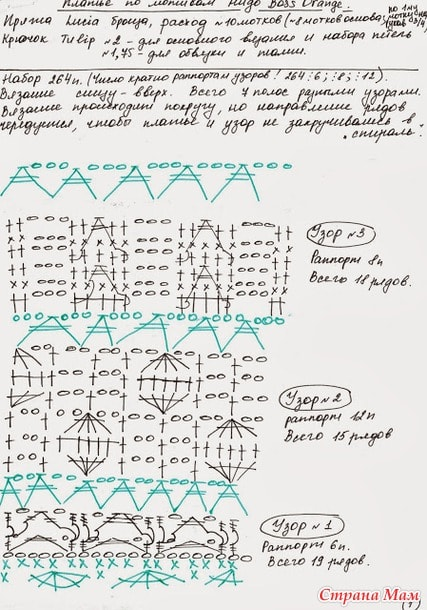 Платье по мотивам нидо Boss Orange.
Пряжа Luzia Броща, расход ~10 мотков (~8 мотков основа;
Крючок Tulip №2 - для основного вязания и набора петель
№1,75 - для обвязки и талии.
Набор 264 п. (Число кратно раппортам узоров! 264 : 6; : 8; : 12).
Вязание снизу-вверх. Всего 7 полос разными узорами.
Вязание происходит по кругу, но направление рядов
чередуется, чтобы платье и узор не закручивались в
спираль!
Узор №3
Раппорт 8п
Всего 18 рядов.
Узор №2
раппорт 12п
Всего 15 рядов
Узор №1
Раппорт 6п.
Всего 19 рядов.
Страна Мам
(1)